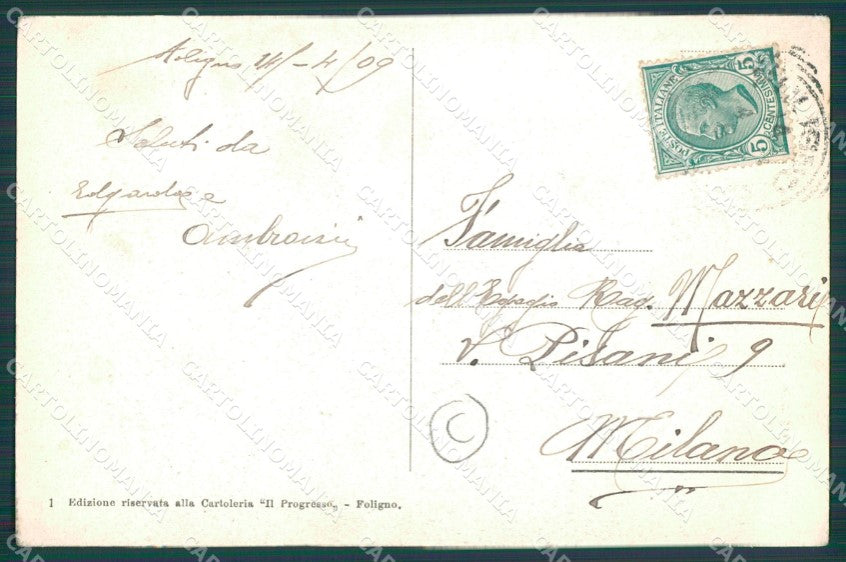 Foligno 24-4/09
Saluti da
Edgardo e
Ambrosini
POSTE ITALIANE
CENTESIMI
5
5
Famiglia
dell'Egregio Rag. Mazzari
V. Pisani 9
Milano
C
1 Edizione riservata alla Cartoleria "Il Progresso„ - Foligno.
CARTOLINOMANIA